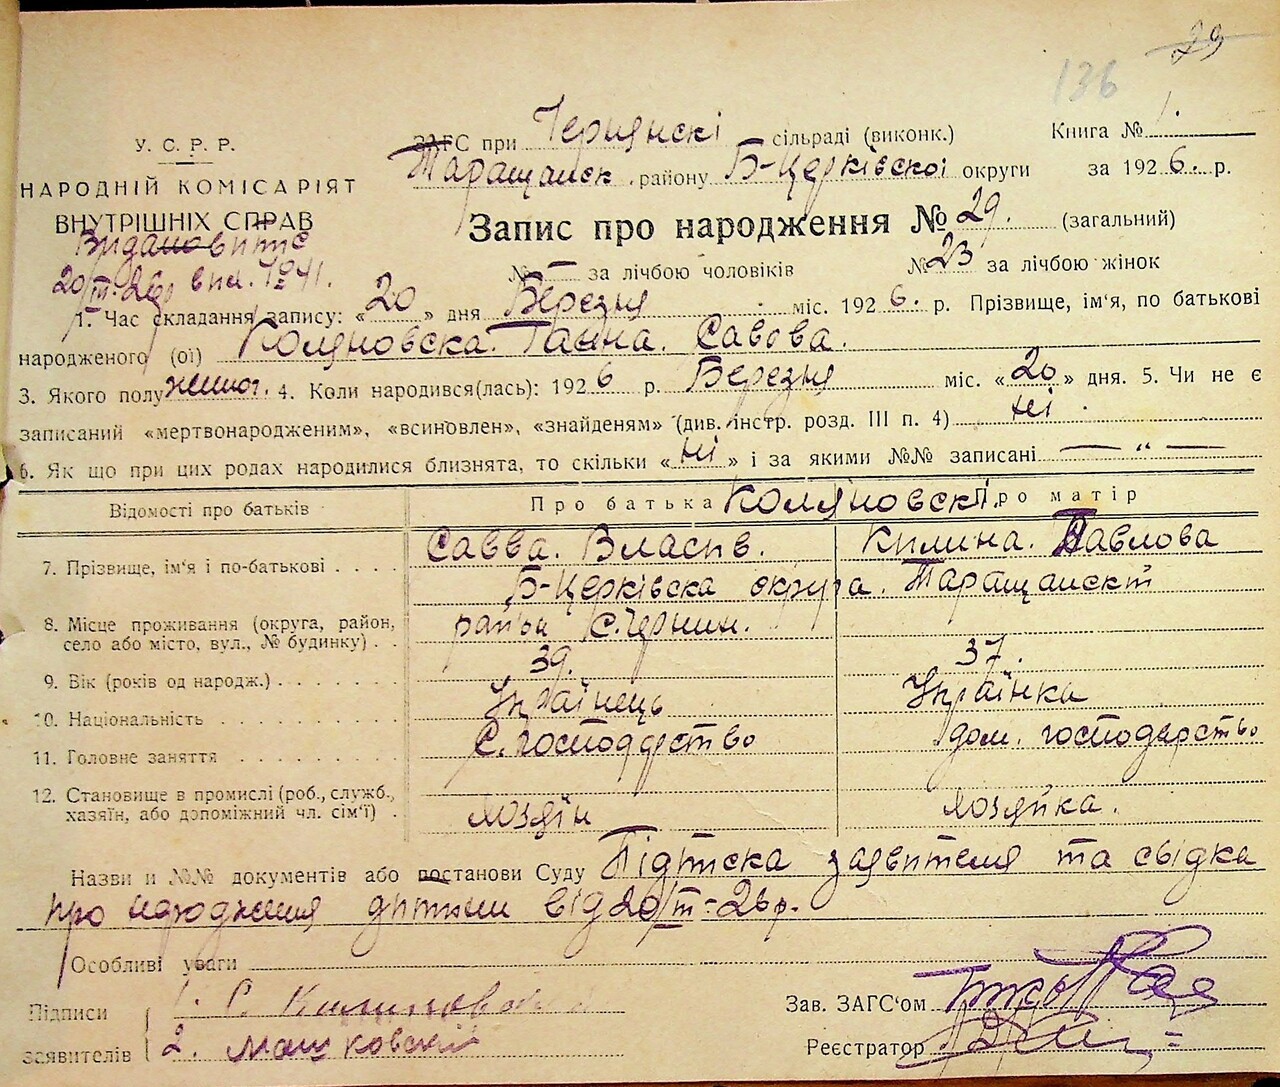 29
136
У. С. Р. Р.
НАРОДНІЙ КОМІСАРІЯТ
ВНУТРІШНІХ СПРАВ
ЗАГС при Чернинскі сільраді (виконк.) Книга № 1.
Таращанск. району Б-Церківскоі округи за 1926. р.
Запис про народження № 29. (загальний)
№ — за лічбою чоловіків № 23 за лічбою жінок
Видано витяг
20/III-26р вип. №41.
1. Час складання запису: «20» дня Березня міс. 1926. р. Прізвище, ім'я, по батькові
народженого (ої) Коляновска. Ганна. Савова.
3. Якого полу жіноч. 4. Коли народився(лась): 1926 р. Березня міс. «20» дня. 5. Чи не є
записаний «мертвонародженим», «всиновлен», «знайденям» (див. інстр. розд. III п. 4) ні.
6. Як що при цих родах народилися близнята, то скільки «ні» і за якими №№ записані — " —
Відомості про батьків Про батька Коляновскі Про матір
7. Прізвище, ім'я і по-батькові . . . . Савва. Власів. Килина. Павлова
Б-Церківска округа. Таращанскт
8. Місце проживання (округа, район, район с. Чернин.
село або місто, вул., № будинку) . .
9. Вік (років од народж.) . . . . . . . 39. 37.
10. Національність . . . . . . . . . . Українець Українка
11. Головне заняття . . . . . . . . . С. господарство дом. господарство
12. Становище в промислі (роб., служб.,
хазяїн, або допоміжний чл. сім'ї) . хозяїн хозяйка.
Назви и №№ документів або постанови Суду Підписка заявителя та свідка
про народження дитини від 20/III-26р.
Особливі уваги
Підписи 1. С.
заявителів 2. Машковский
Зав. ЗАГС'ом
Реєстратор